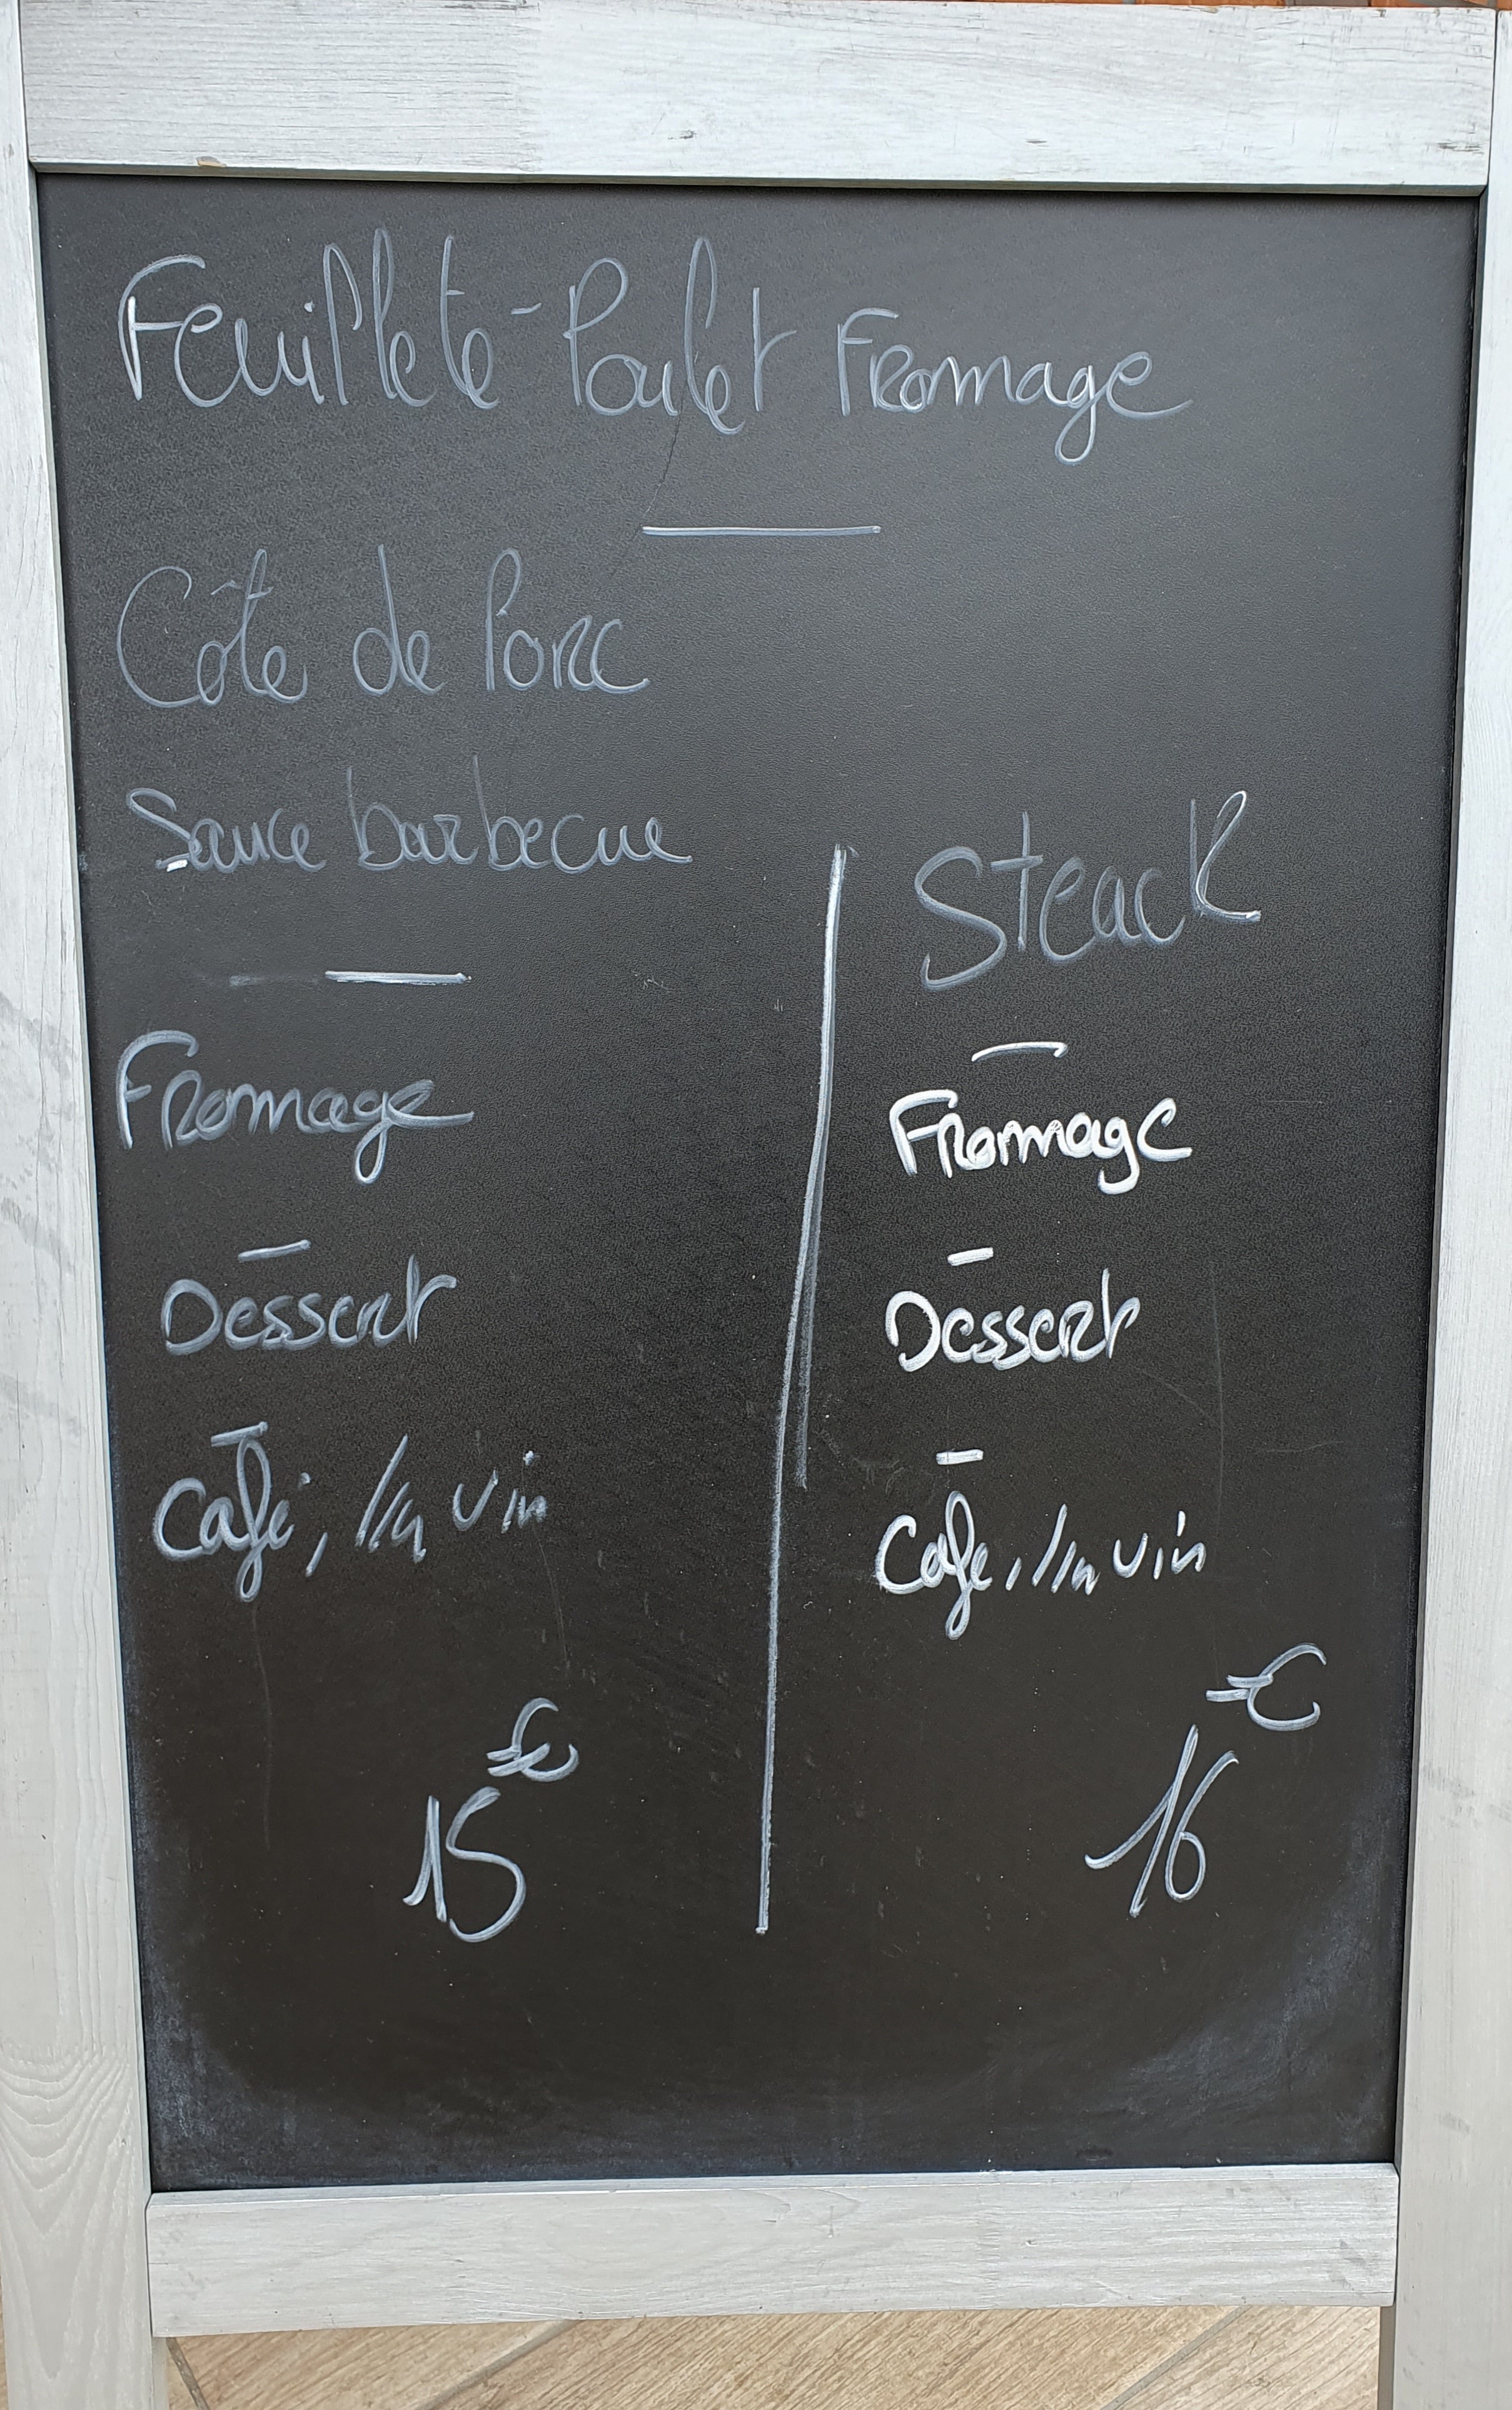 Feuilleté Poulet Fromage
Côte de Porc
Sauce barbecue
Fromage
Dessert
Café, 1/4 vin
15€
Steack
Fromage
Dessert
Cafe, 1/4 vin
16€